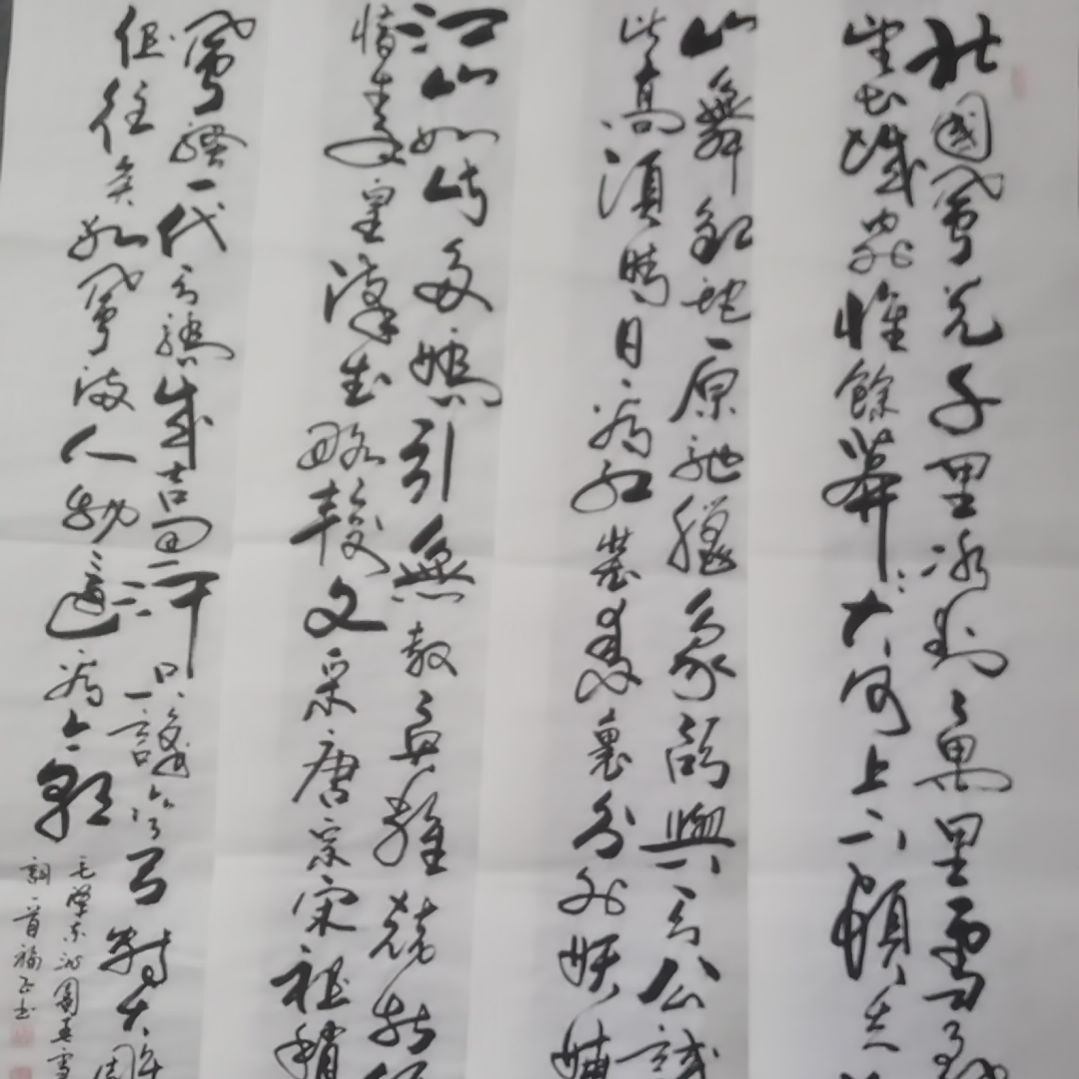 北國風光千里冰封萬里雪飄
望長城內外惟餘莽莽大河上下頓失
山舞銀蛇原馳臘象欲與天公試
比高須晴日看紅裝素裹分外妖嬈
江山如此多嬌引無數英雄競折
惜秦皇漢武略輸文采唐宗宋祖稍
風騷一代天驕成吉思汗只識彎弓射大雕
俱往矣數風流人物還看今朝
毛澤東沁園春雪
詞一首福正書